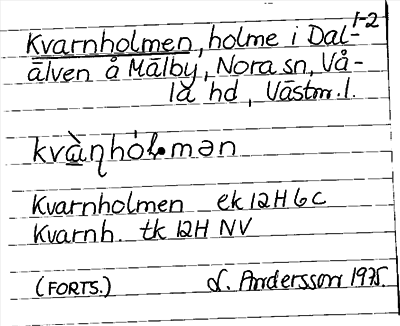 1-2
Kvarnholmen, holme i Dal-
älven å Mälby, Nora sn, Vå-
la hd, Västm.l.
kvàɳhól·mən
Kvarnholmen ek 12H 6c
Kvarnh. tk 12H NV
(FORTS.) L. Andersson 1975.